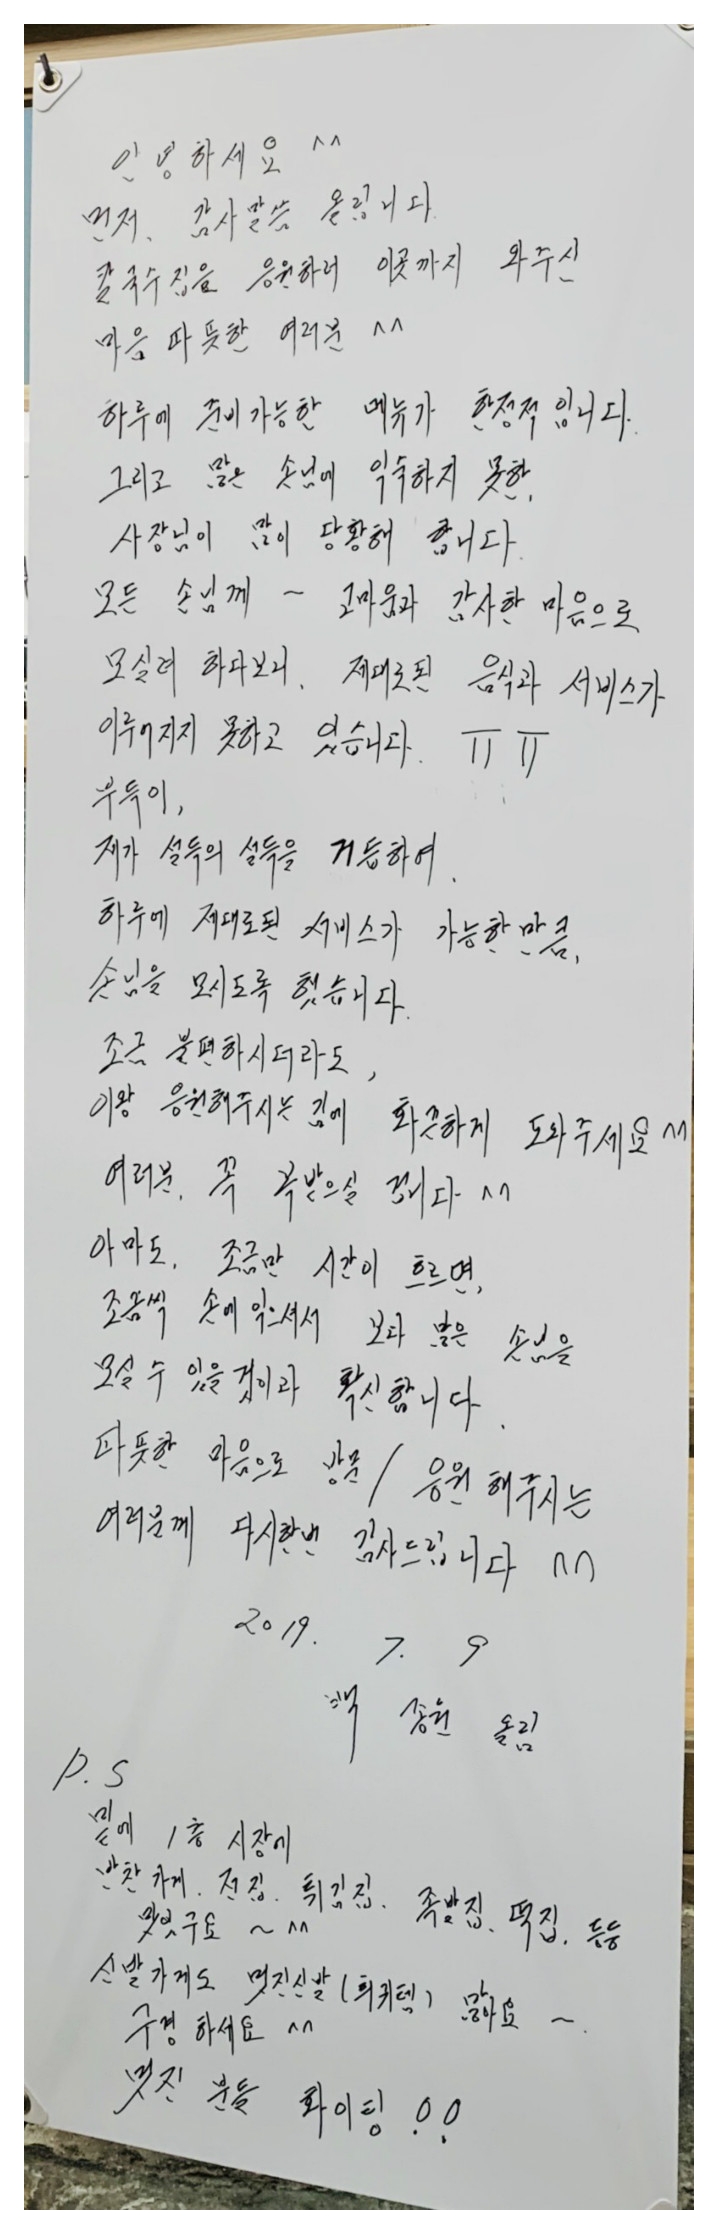 안녕하세요 ^^
먼저, 감사말씀 올립니다.
칼국수집을 응원하러 이곳까지 와주신
마음 따뜻한 여러분 ^^
하루에 준비가능한 메뉴가 한정적 입니다.
그리고 많은 손님에 익숙하지 못한,
사장님이 많이 당황해 합니다.
모든 손님께 ~ 고마움과 감사한 마음으로
모실려 하다보니, 제대로된 음식과 서비스가
이루어지지 못하고 있습니다. ㅠㅠ
부득이,
제가 설득의 설득을 거듭하여,
하루에 제대로된 서비스가 가능한만큼,
손님을 모시도록 했습니다.
조금 불편하시더라도,
이왕 응원해주시는김에 화끈하게 도와주세요 ^^
여러분, 꼭 복받으실 겁니다 ^^
아마도, 조금만 시간이 흐르면,
조금씩 손에익으셔서 보다 많은 손님을
모실 수 있을것이라 확신합니다.
따뜻한 마음으로 방문/응원해주시는
여러분께 다시한번 감사드립니다 ^^
2019. 7. 9
백 종원 올림
P.S
밑에 1층 시장에
반찬가게, 전집, 튀김집, 족발집, 떡집, 등등
맛있구요 ~ ^^
신발가게도 멋진신발(희귀템) 많아요 ~.
구경하세요 ^^
멋진 분들 화이팅!!